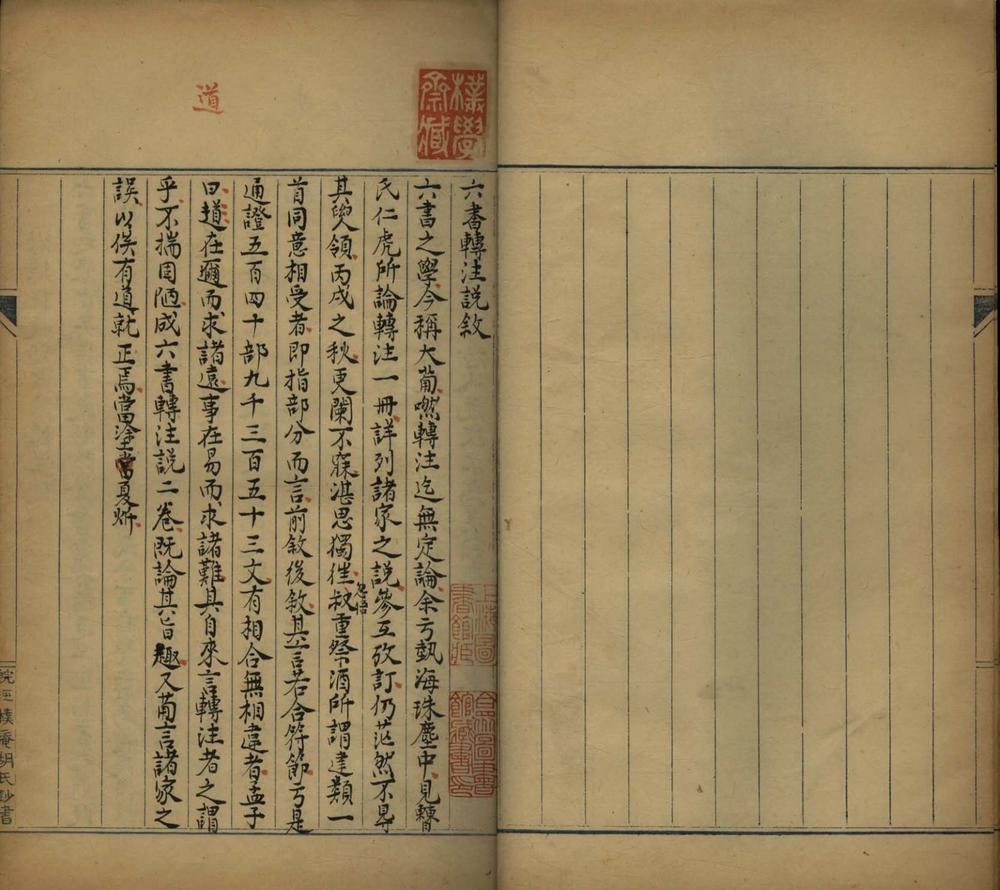 六書轉注說敘
六書之學今稱大葡嘫轉注迄無定論余亏埶海珠塵中見
氏仁虎所論轉注一冊詳列諸家之說參互攷訂仍茫然不見
其領丙戌之秋更闌不寐湛思獨徃忽悟叔重祭酒所謂建類一
首同意相受者即指部分而言前敘後敘其言若合符節亏是
通證五百四十部九千三百五十三文有相合無相違者孟子
曰道在邇而求諸遠事在易而求諸難其自來言轉注者之謂
乎不揣固陋成六書轉注說二卷既論其旨趣又葡言諸家之
誤以俟有道就正焉當塗夏炘
道
樸學齋藏
上海圖書館藏
合眾圖書館藏書印
皖涇樸庵胡氏鈔書